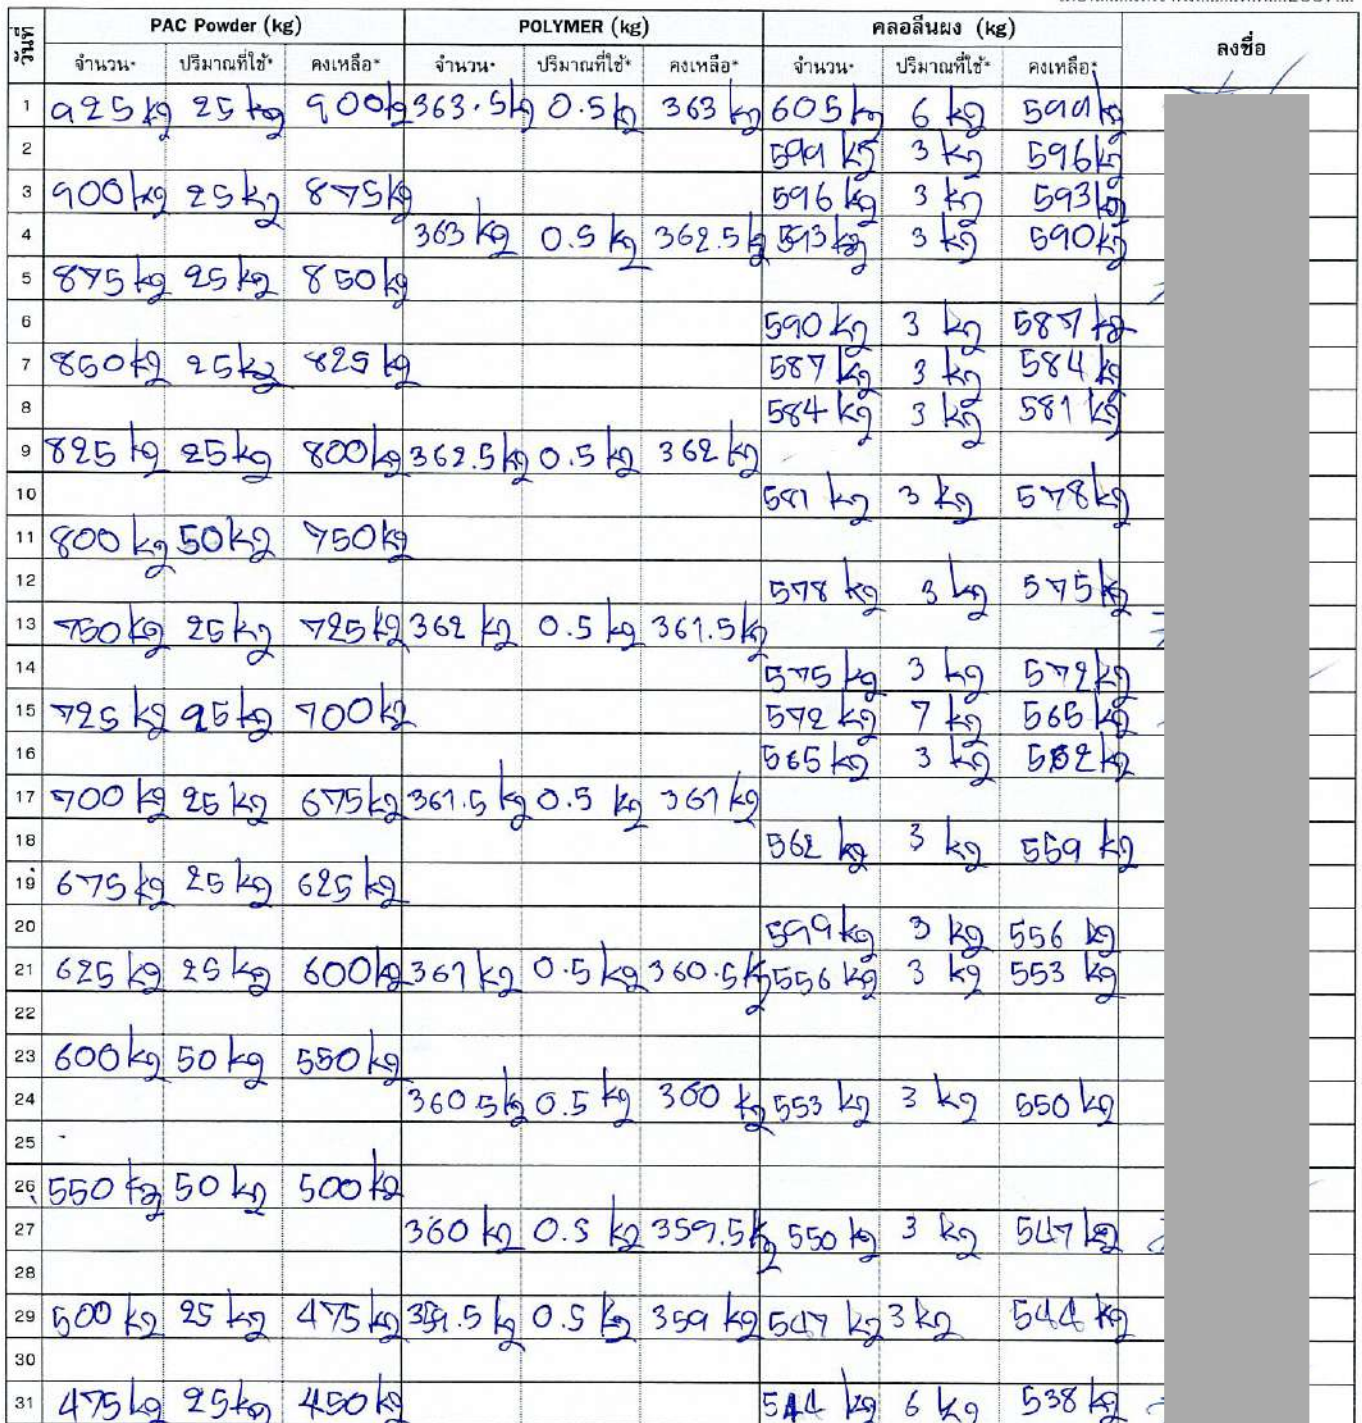 วันที่ PAC Powder (kg) POLYMER (kg) คลอลีนผง (kg) ลงชื่อ
จำนวน* ปริมาณที่ใช้* คงเหลือ* จำนวน* ปริมาณที่ใช้* คงเหลือ* จำนวน* ปริมาณที่ใช้* คงเหลือ*
1 925 kg 25 kg 900 kg 363.5 kg 0.5 kg 363 kg 605 kg 6 kg 599 kg
2 599 kg 3 kg 596 kg
3 900 kg 25 kg 875 kg 596 kg 3 kg 593 kg
4 363 kg 0.5 kg 362.5 kg 593 kg 3 kg 590 kg
5 875 kg 25 kg 850 kg
6 590 kg 3 kg 587 kg
7 850 kg 25 kg 825 kg 587 kg 3 kg 584 kg
8 584 kg 3 kg 581 kg
9 825 kg 25 kg 800 kg 362.5 kg 0.5 kg 362 kg
10 581 kg 3 kg 578 kg
11 800 kg 50 kg 750 kg
12 578 kg 3 kg 575 kg
13 750 kg 25 kg 725 kg 362 kg 0.5 kg 361.5 kg
14 575 kg 3 kg 572 kg
15 725 kg 25 kg 700 kg 572 kg 7 kg 565 kg
16 565 kg 3 kg 562 kg
17 700 kg 25 kg 675 kg 361.5 kg 0.5 kg 361 kg
18 562 kg 3 kg 559 kg
19 675 kg 25 kg 625 kg
20 599 kg 3 kg 556 kg
21 625 kg 25 kg 600 kg 361 kg 0.5 kg 360.5 kg 556 kg 3 kg 553 kg
22
23 600 kg 50 kg 550 kg
24 360.5 kg 0.5 kg 360 kg 553 kg 3 kg 550 kg
25
26 550 kg 50 kg 500 kg
27 360 kg 0.5 kg 359.5 kg 550 kg 3 kg 547 kg
28
29 500 kg 25 kg 475 kg 359.5 kg 0.5 kg 359 kg 547 kg 3 kg 544 kg
30
31 475 kg 25 kg 450 kg 544 kg 6 kg 538 kg